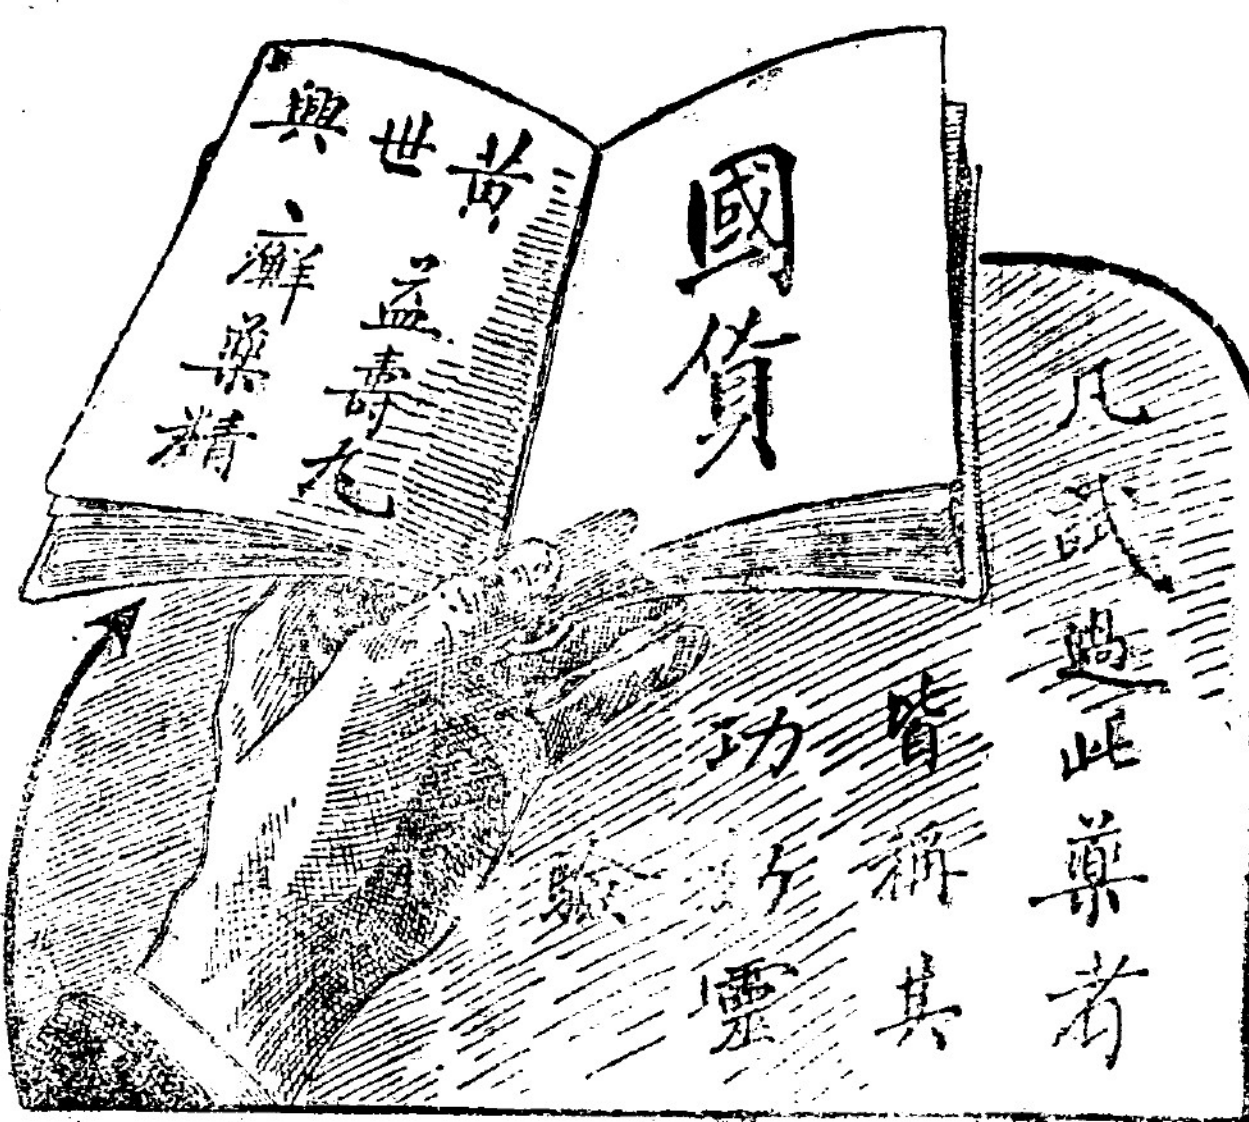 國貨
黃世興
益壽丸
癬藥精
凡試過此藥者
皆稱其
功 靈
驗